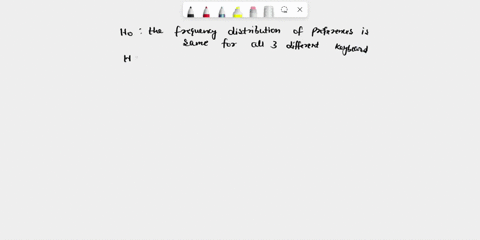 Ho : the frequency distribution of preferences is
same for all 3 different keyboard
H